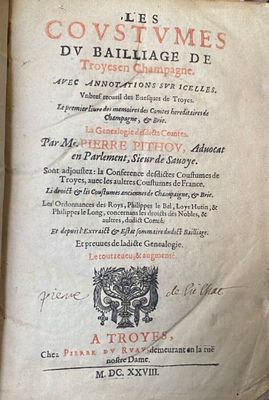 LES
COVSTVMES
DV BAILLIAGE DE
Troyes en Champagne.
AVEC ANNOTATIONS SVR ICELLES.
Vn bref recueil des Euesques de Troyes.
Le premier liure des memoires des Comtes hereditaires de
Champagne, & Brie.
La Genealogie desdicts Comtes.
Par Me. PIERRE PITHOV, Aduocat
en Parlement, Sieur de Sauoye.
Sont adioustez: la Conference desdictes Coustumes de
Troyes, auec les aultres Coustumes de France.
Le droict & les Coustumes anciennes de Champagne, & Brie.
Les Ordonnances des Roys, Philippes le Bel, Loys Hutin, &
Philippes le Long, concernans les droicts des Nobles, &
aultres, dudict Comté.
Et depuis l'Extraict & Estat sommaire dudict Bailliage.
Et preuues de ladicte Genealogie.
Le tout reueu, & augmenté.
pierre de
A TROYES,
Chez PIERRE DV RVAV, demeurant en la ruë
nostre Dame.
M. DC. XXVIII.